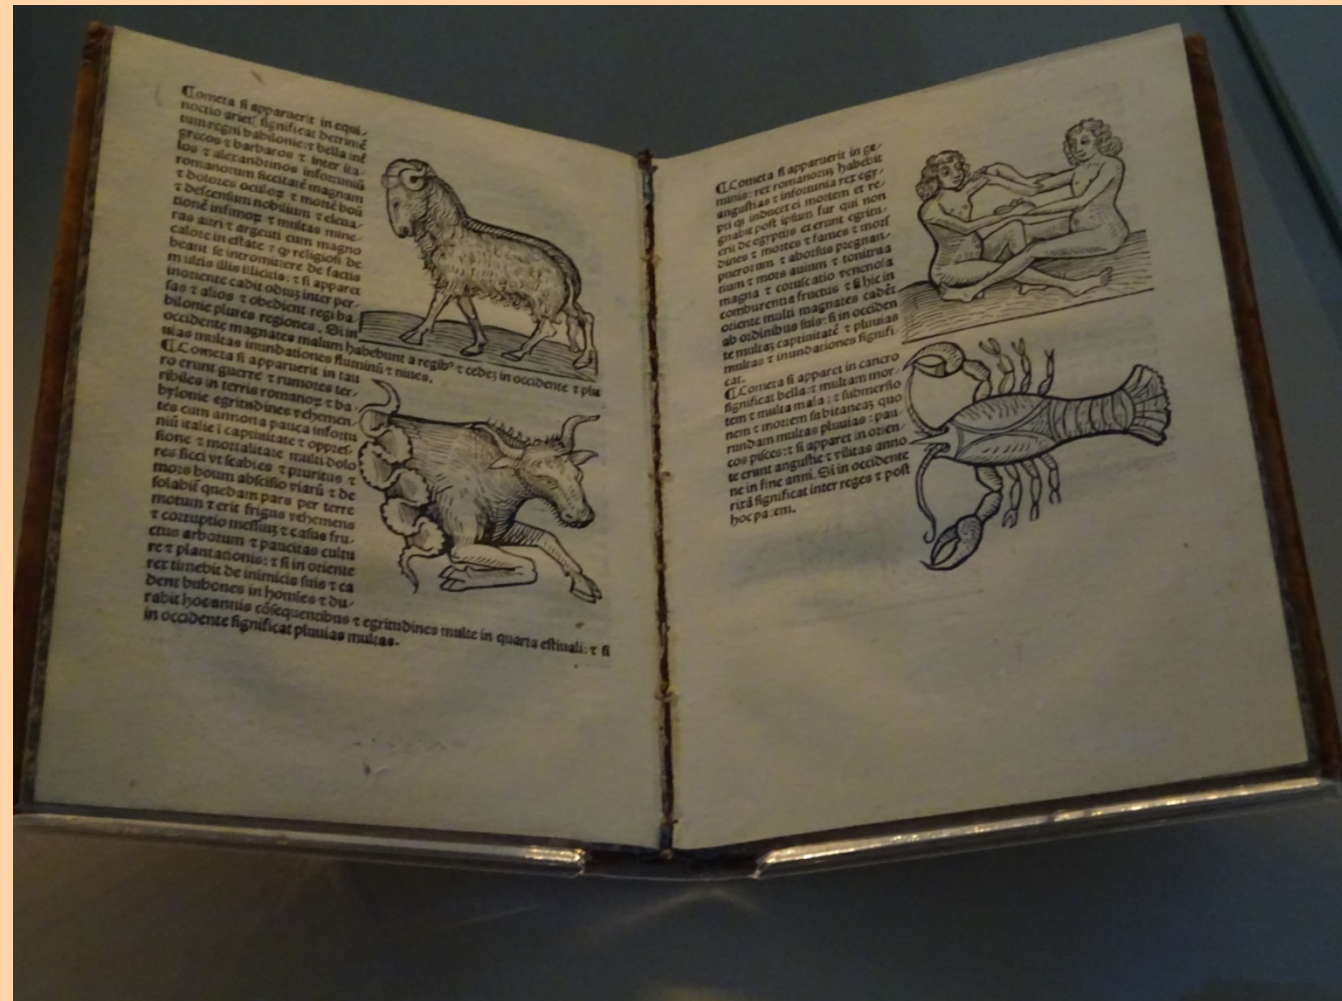 ¶Cometa si apparuerit in equi-
noctio ariet[ꝭ] significat detrimẽ
tum regni babilonie: ⁊ bella int̃
grecos ⁊ barbaros ⁊ inter ita-
los ⁊ alexandrinos infortuniũ
romanorum siccitatẽ magnam
⁊ dolores oculoꝝ ⁊ mortẽ boũ
⁊ descensum nobilium ⁊ eleua-
tionẽ infimoꝝ ⁊ multas mine-
ras auri ⁊ argenti cum magno
calore in estate ⁊ ꝙ religiosi de
beant se intromittere de factis
illis illicitis: ⁊ si apparet
in oriente cadit odiuȝ inter per-
sas ⁊ alios ⁊ obedient regi ba
bilonie plures regiones. Si in
occidente magnates malum habebunt a regibꝰ ⁊ cedeȝ in occidente ⁊ plu
uias multas inundationes fluminũ ⁊ niues.
¶Cometa si apparuerit in tau
ro erunt guerre ⁊ rumores ter-
ribiles in terris romanoꝝ ⁊ ba-
bylonie egritudines vehemen-
tes cum annona pauca infortu
niũ italie captiuitatẽ ⁊ oppres-
sione ⁊ mortalitatẽ multi dolo
res sicci vt scabies ⁊ pruritus ⁊
mors boum abscisio viarũ ⁊ de
solabit̃ quedam pars per terre
motum ⁊ erit frigus vehemens
⁊ corruptio messiuȝ ⁊ casus fru-
ctus arborum ⁊ paucitas cultu
re ⁊ plantationis: ⁊ si in oriente
rex timebit de inimicis suis ⁊ ca
dent bubones in homĩes ⁊ du-
rabit hoc annis cõsequentibus ⁊ egritudines multe in quarta estiuali: ⁊ si
in occidente significat pluuias multas.
¶Cometa si apparuerit in ge-
minis: rex romanoruȝ habebit
angustias ⁊ infortunia rex egy-
pti ꝙ inducet ei mortem et re-
gnabit post ipsum fur qui non
erit de egyptijs et erunt egritu-
dines ⁊ mortes ⁊ fames ⁊ mors
puerorum ⁊ aborsus pregnan-
tium ⁊ mors auium ⁊ tonitrua
magna ⁊ coruscatio venenosa
comburentia fructus ⁊ si hic in
oriente multi magnates cadẽt
ab ordinibus suis: si in occiden
te multaȝ captiuitatẽ ⁊ pluuias
multas ⁊ inundationes signifi-
cat.
¶Cometa si apparet in cancro
significat bella: ⁊ multam mor-
tem ⁊ multa mala: ⁊ submersio
nem ⁊ mortem subitaneaȝ quo
rundam multas pluuias: pau-
cos pisces: ⁊ si apparet in orien-
te erunt angustie ⁊ vilitas anno
ne in fine anni. Si in occidente
rixã significat inter reges ⁊ post
hoc pacem.